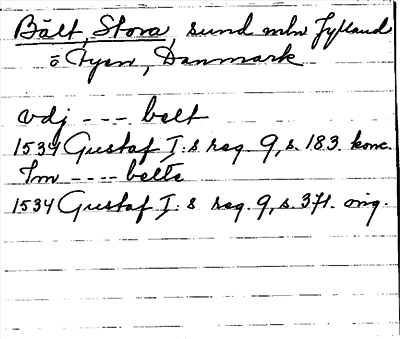 Bält, Stora, sund mln Jylland
o Fyen, Danmark
vdj --- belt
1534 Gustaf I:s reg. 9, s. 183. konc.
Im ---- belte
1534 Gustaf I:s reg. 9, s. 371. orig.